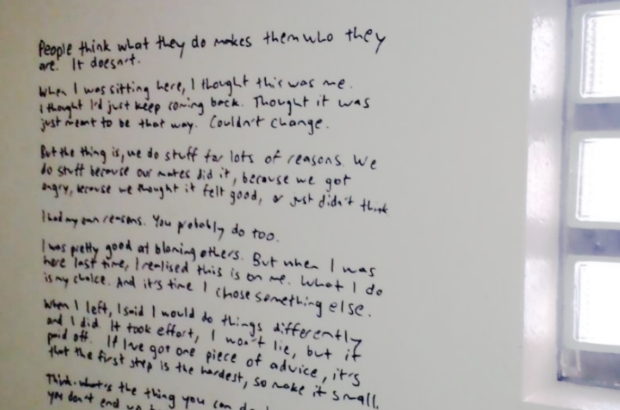 People think what they do makes them who they
are. It doesn't.
When I was sitting here, I thought this was me.
I thought I'd just keep coming back. Thought it was
just meant to be that way. Couldn't change.
But the thing is, we do stuff for lots of reasons. We
do stuff because our mates did it, because we got
angry, because we thought it felt good, or just didn't think
I had my own reasons. You probably do too.
I was pretty good at blaming others. But when I was
here last time, I realised this is on me. What I do
is my choice. And it's time I chose something else.
When I left, I said I would do things differently
and I did. It took effort, I won't lie, but it
paid off. If I've got one piece of advice, it's
that the first step is the hardest, so make it small.
Think what's the thing you can do
you don't end up